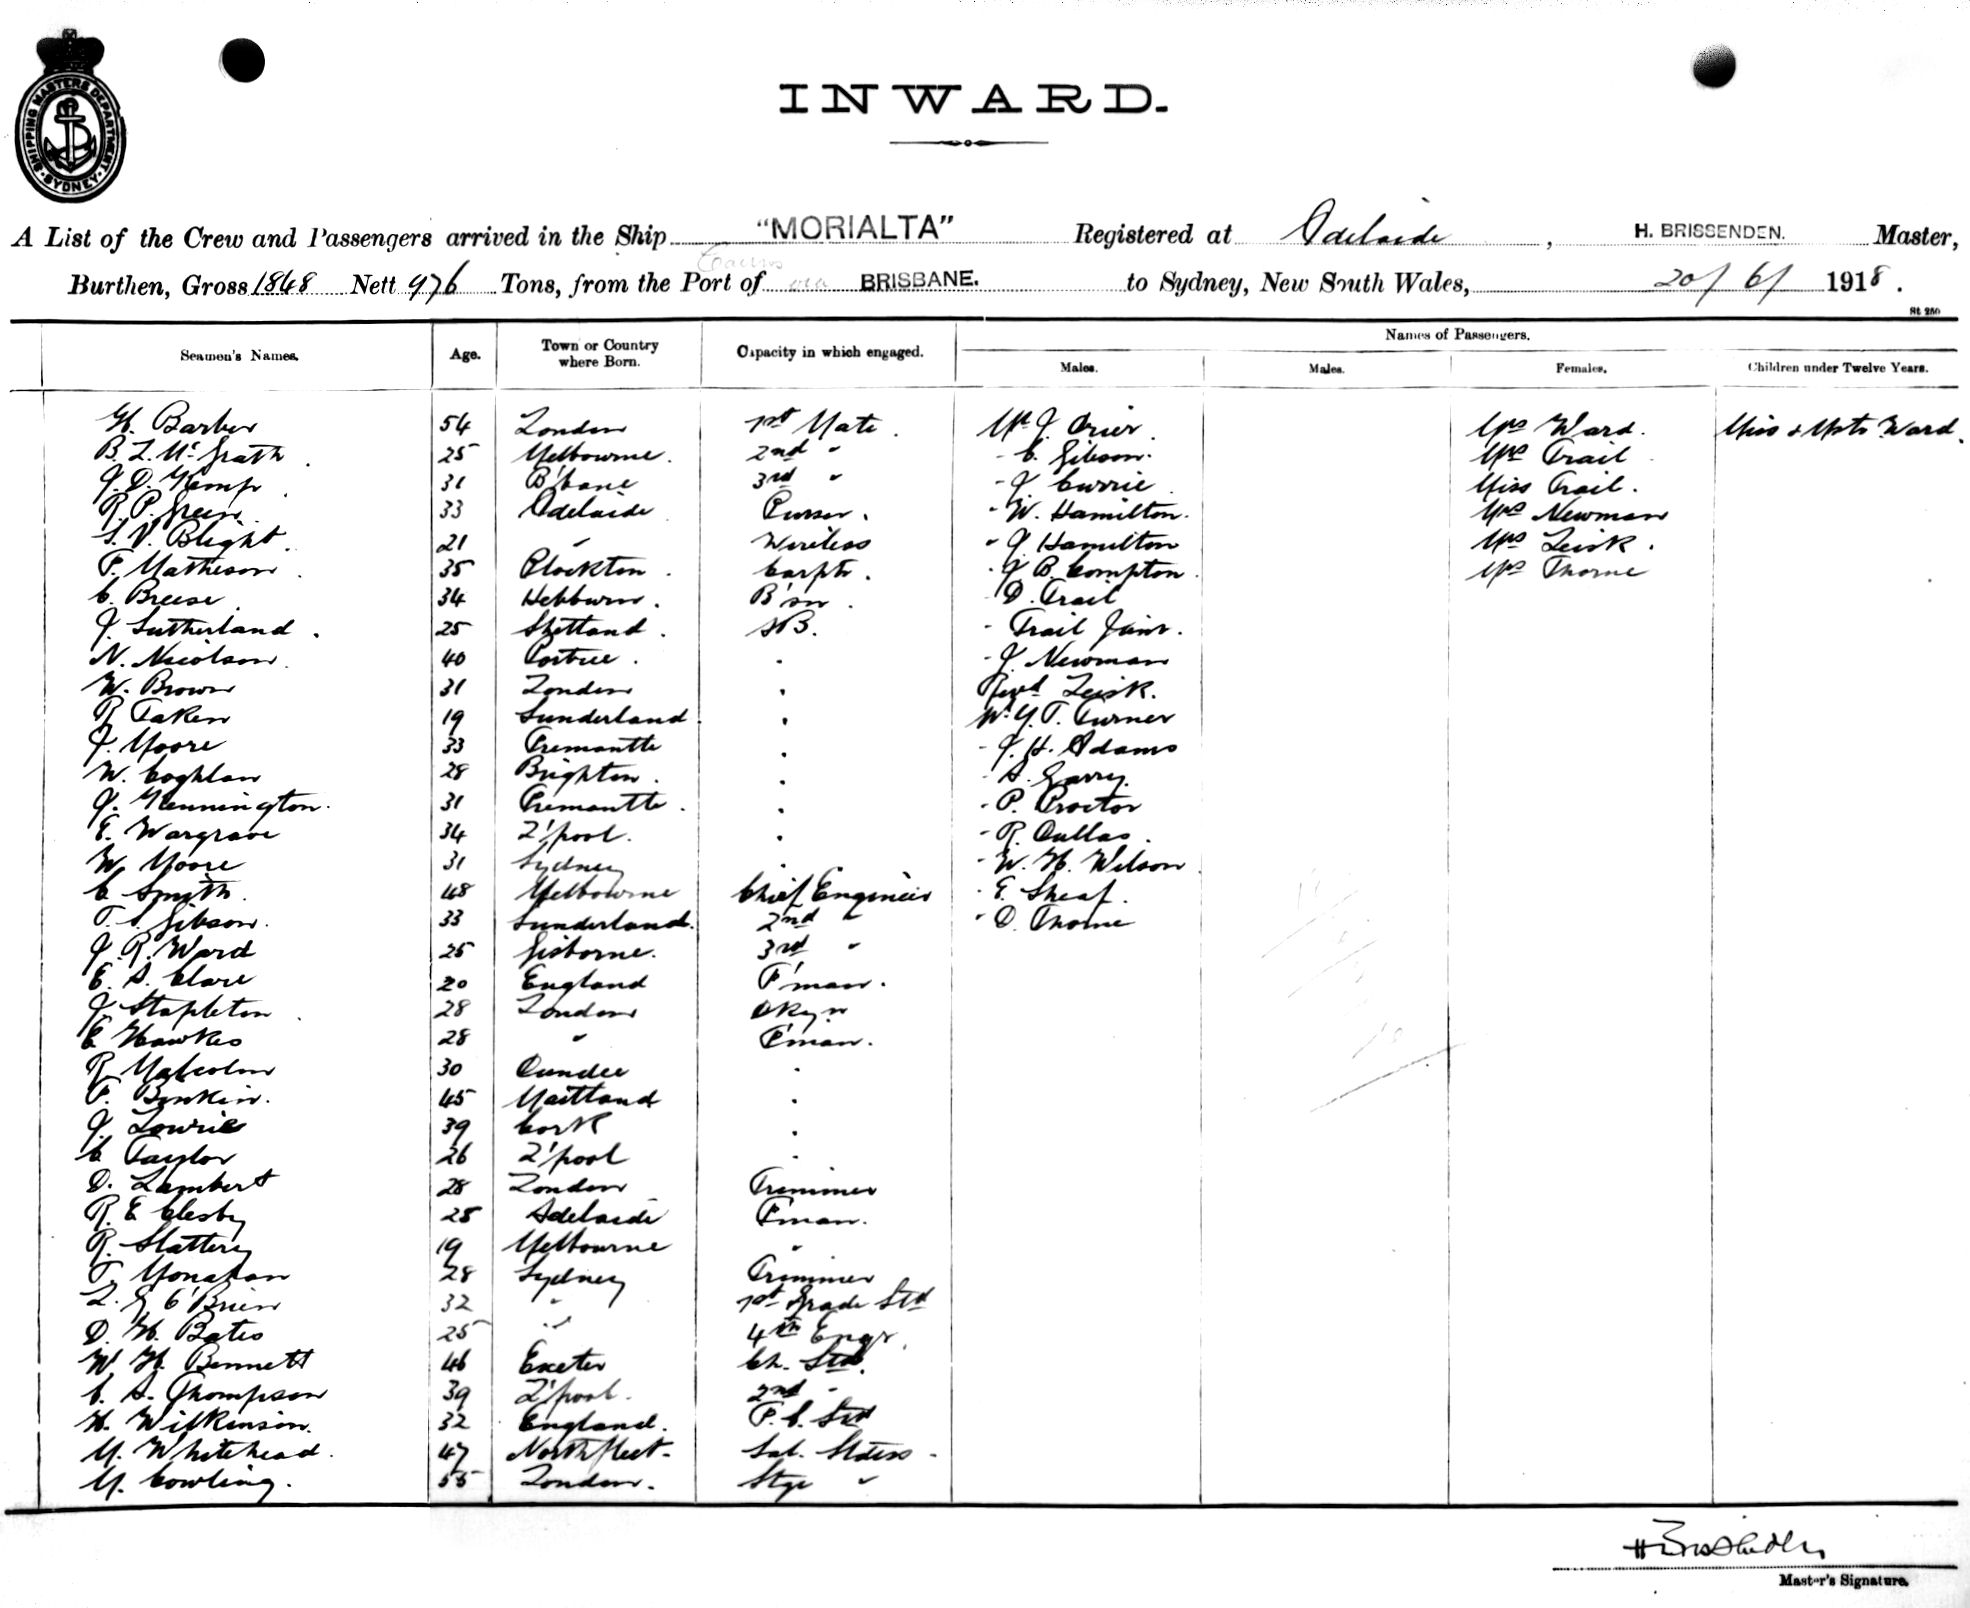 SHIPPING MASTERS DEPARTMENT. SYDNEY.
INWARD.
A List of the Crew and Passengers arrived in the Ship "MORIALTA" Registered at Adelaide, H. BRISSENDEN. Master,
Burthen, Gross 1848 Nett 976 Tons, from the Port of Cairns via BRISBANE. to Sydney, New South Wales, 20/6/1918.
St 250
Seamen's Names. Age. Town or Country where Born. Capacity in which engaged. Names of Passengers.
Males. Males. Females. Children under Twelve Years.
H. Barber 54 London 1st Mate. Mr J. Crier. Mrs Ward. Miss & Mstr Ward.
B. L. McGrath 25 Melbourne. 2nd " - C. Gibson. Mrs Trail
J. D. Kemp 31 B'bane 3rd " - J Currie Miss Trail.
R P. Green 33 Adelaide Purser. - W. Hamilton. Mrs Newman
S. V. Blight. 21 " Wireless " J Hamilton Mrs Leisk.
F. Matheson 35 Plockton. Carptr. - J B. Compton Mrs Thorne
C. Breese 34 Hebburn. B'sn. - D. Trail
J. Sutherland. 25 Shetland. AB. - Trail Junr.
N. Nicolson. 40 Portree. . - J. Newman
W. Brown 31 London . Revd Leisk.
R Taken 19 Sunderland. . Mr Y. T. Turner
J. Moore 33 Fremantle . - J. H. Adams
W. Coghlan 28 Brighton. . - A. Garry.
J. Kennington. 31 Fremantle. . - P. Proctor
E. Wargrave 34 L'pool. . - R. Dallas.
W. Moore 31 Sydney . - W. H. Wilson
C Smyth. 48 Melbourne Chief Engineer - E. Sheaf.
T. S. Gibson. 33 Sunderland. 2nd " " D. Thorne
J. R. Ward 25 Gisborne. 3rd "
E. A. Clare 20 England F'man.
J. Stapleton. 28 London Dkyn
E Hawkes 28 " F'man.
R. Malcolm 30 Dundee .
F. Binkin. 45 Maitland .
J. Lowrie 39 Cork .
C Taylor 26 L'pool .
D. Lambert 28 London Trimmer
R. E Clesby 25 Adelaide F'man.
R. Slattery 19 Melbourne "
T. Monahan 28 Sydney Trimmer
L. G O'Brien 32 " 1st Grade Std
D. H. Bates 25 " 4th Engr.
W. H. Bennett 46 Exeter Ch. Std.
C. A. Thompson 39 L'pool. 2nd "
H. Wilkinson. 32 England. F. C. Std
M. Whitehead. 47 Northfleet. Sal. Stdess.
M. Cowling. 55 London. Stge "
H Brissenden
Master's Signature.